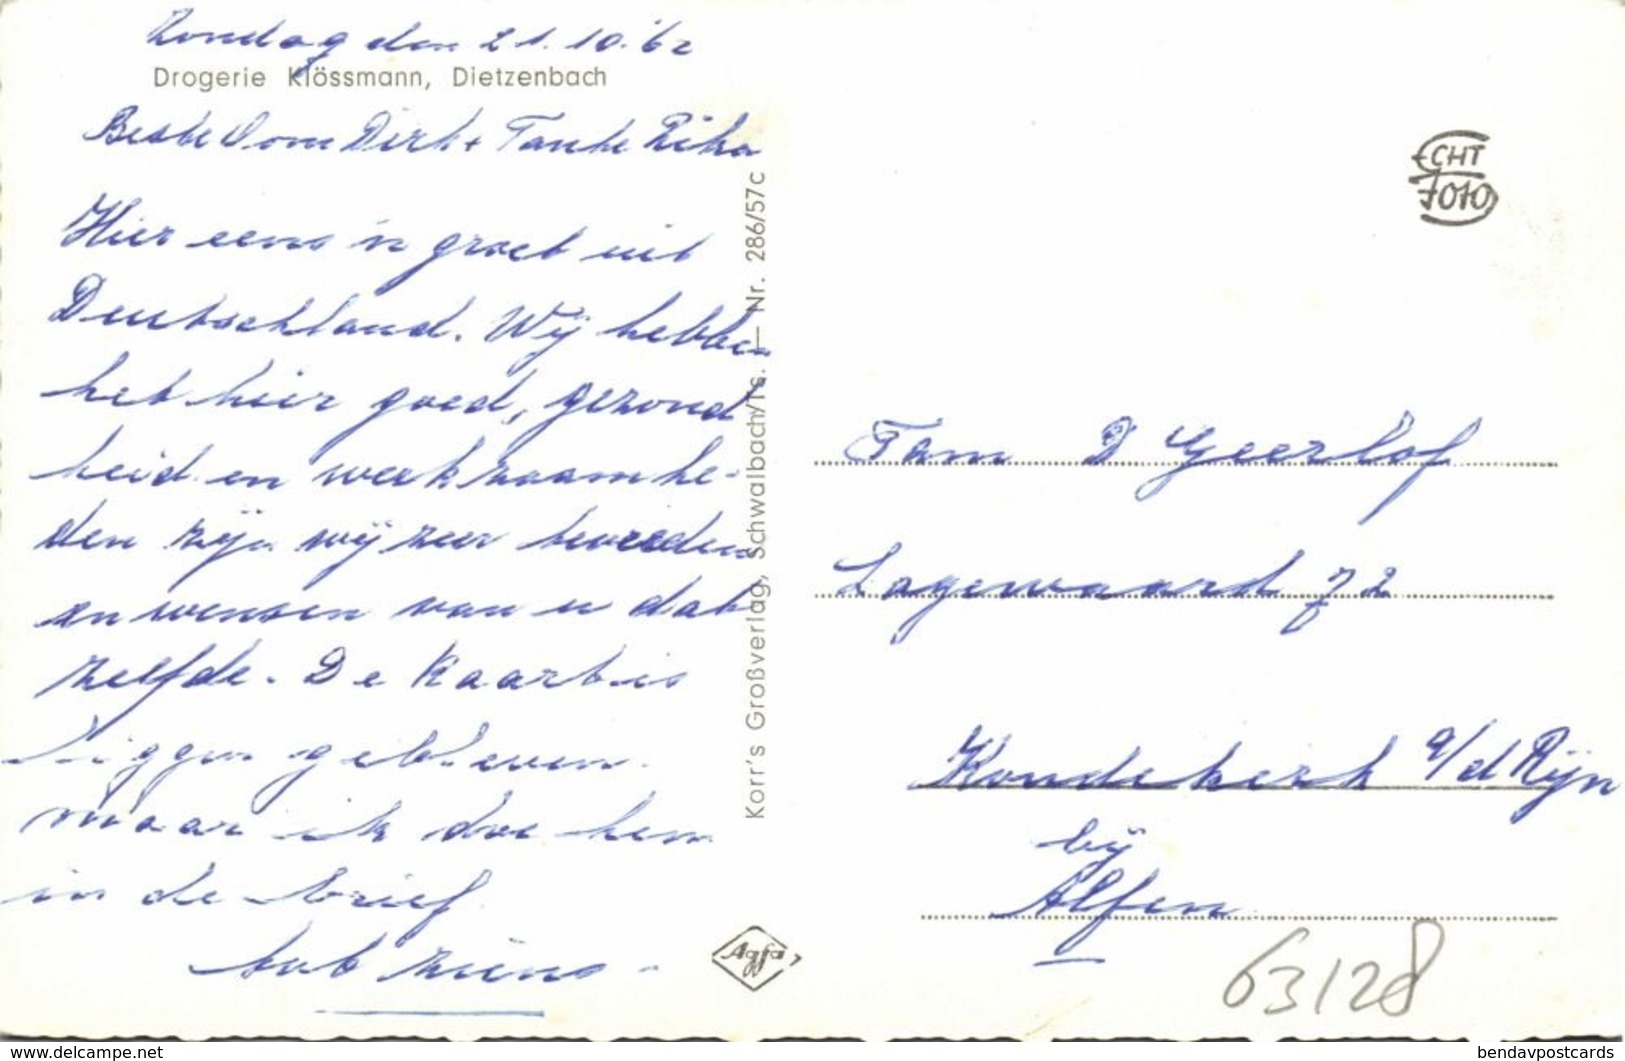 Zondag den 21.10.62
Drogerie Klössmann, Dietzenbach
Beste Oom Dirk + Tante Rika
Hier eens 'n groet uit
Deutschland. Wij hebben
het hier goed, gezond
heid en werkzaamhe-
den zijn wij zeer tevreden
en wensen van u dat
zelfde. De kaart is
liggen gebleven.
maar ik doe hem
in de brief.
Korr's Großverlag, Schwalbach/Ts. — Nr. 286/57c
Agfa
ECHT
FOTO
Fam D Geerlof
Lagewaard 72
Koudekerk a/d Rijn
bij
Alfen
63128
www.delcampe.net
bendavpostcards